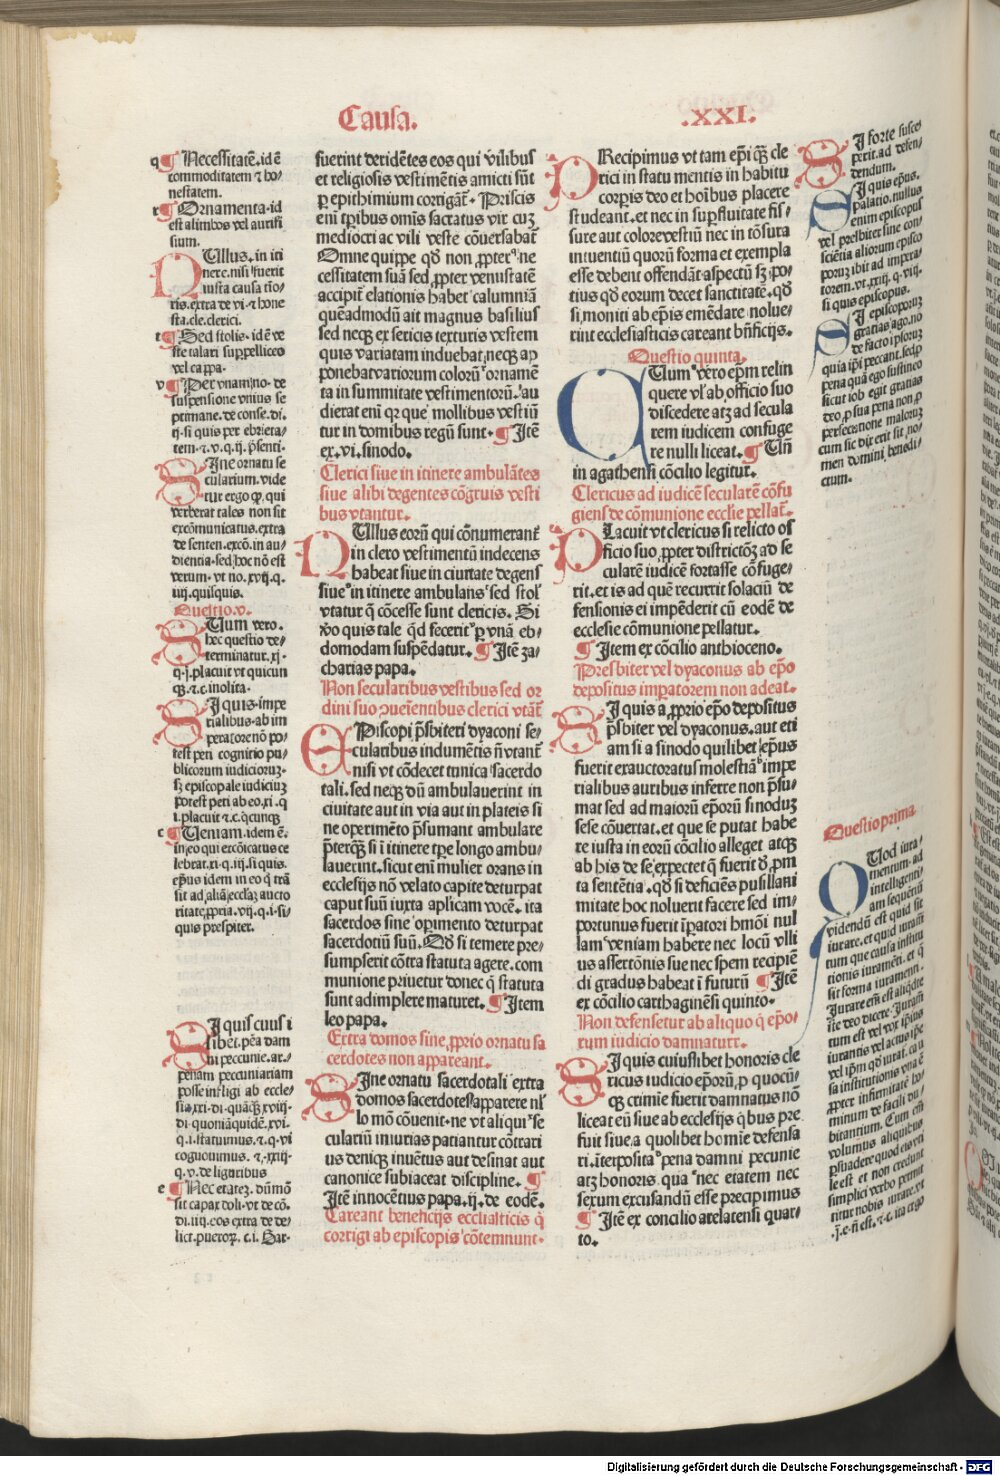 Causa. .XXI.
q ¶ Necessitatē.id ē
commoditatem ⁊ ho/
nestatem.
r ¶ Ornamenta.id
est alimbos vel aurifi
sium.
NUllus.in iti
nere.nisi fuerit
iusta causa tīo/
ris.extra de vi.⁊ hone
sta.cle.clerici.
t ¶ Sed stolis.idē ve
ste talari suppelliceo
vel cappa.
v ¶ Per vnam:no.de
suspensione vnius se
ptimane.de conse.di.
ij.si quis per ebrieta/
tem.⁊.v.q.ij.p̄senti.
SIne ornatu se
cularium.vide
tur ergo ꝙ, qui
verberat tales non sit
excōmunicatus.extra
de senten.excō.in au/
dientia.sed hoc nō est
verum.vt no.xvij.q.
iiij.quisquis.
Questio.v.
CUum vero.
hec questio de/
terminatur.xj.
q.j.placuit vt quicun
qꝫ.⁊.c.inolita.
SI quis.impe
rialibus.ab im
peratore nō po/
test peti cognitio pu/
blicorum iudiciorum.
sꝫ episcopale iudiciuꝫ
potest peti ab eo.xi.q
i.placuit ⁊.c.q̄cunqꝫ
c ¶ Ueniam.idem ē.
in eo qui excōicatus ce
lebrat.xi.q.iij.si quis.
ep̄us idem in eo q̄ trā
sit ad aliā eccliaꝫ aucto
ritate ꝓpria.vij.q.i.si/
quis presbiter.
SI quis cuius i
libet.pēa dam
ni peccunie.ar.
penam peccuniariam
posse infligi ab eccle/
sia.xxi.di.quāqꝫ.xviij.
di.quoniā quidē.xvi.
q.i.statuimus.⁊.q.vi
cognouimus.⁊.xxiij.
q.v.de liguribus
e ¶ Nec etateꝫ.dūmō
sit capax doli.vt de cō.
di.iiij.eos extra de de/
lict.pueroꝝ.c.i.Bar.
fuerint deridētes eos qui vilibus
et religiosis vestimētis amicti sūt
ꝑ epithimium corrigāt. Priscis
eni tꝑibus omīs sacratus vir cuꝫ
mediocri ac vili veste cōuersabat̄
Omne quippe qd̄ non ꝓpter ne
cessitatem suā sed ꝓpter venustatē
accipit̄ elationis habet calumniā
queadmodū ait magnus basilius
sed neqꝫ ex sericis texturis vestem
quis variatam induebat,neqꝫ ap
ponebat variorum colorū ornamē
ta in summitate vestimentorū.au/
dierat enī qr que mollibus vestiū
tur in domibus regū sunt. ¶ Itē
ex.vi.sinodo.
Clerici siue in itinere ambulātes
siue alibi degentes cōgruis vesti
bus vtantur.
NUllus eorū qui cōnumerant̄
in clero vestimentū indecens
habeat siue in ciuitate degens
siue in itinere ambulans sed stol'
vtatur q̄ cōcesse sunt clericis. Si
v̓o quis tale qd̄ fecerit ꝑ vnā eb/
domodam suspēdatur. ¶ Itē za/
charias papa.
Non secularibus vestibus sed or
dini suo ꝓueniētibus clerici vtāt̄
EPiscopi p̄sbiteri dyaconi se/
cularibus indumētis n̄ vtant̄
nisi vt cōdecet tunica sacerdo
tali.sed neqꝫ dū ambulauerint in
ciuitate aut in via aut in plateis si
ne operimēto p̄sumant ambulare
p̄terqꝫ si ī itinere tꝑe longo ambu/
lauerint.sicut enī mulier orans in
ecclesijs nō velato capite deturpat
caput suū iuxta aplicam vocē. ita
sacerdos sine oꝑimento deturpat
sacerdotiū suū. Qd̄ si temere pre/
sumpserit cōtra statuta agere.com
munione priuetur donec q̄ statuta
sunt adimplere maturet. ¶ Item
leo papa.
Extra domos sine ꝓprio ornatu sa
cerdotes non appareant.
SIne ornatu sacerdotali extra
domos sacerdotes apparere nl'
lo mō cōuenit.ne vt aliqui se
cularium iniurias patiantur cōtrari
us deniqꝫ inuētus aut desinat aut
canonice subiaceat discipline. ¶
Itē innocētius papa.ij.de eodē.
Careant beneficijs ecclīasticis q̄
corrigi ab episcopis cōtemnunt.
PRecipimus vt tam ep̄i qꝫ cle
rici in statu mentis in habitu
corꝑis deo et hoībus placere
studeant.et nec in suꝑfluitate fis/
sure aut colore vestiū nec in tōsura
intuentiū quorū forma et exempla
esse debent offendāt aspectū sꝫ po/
tius qd̄ eorum decet sanctitatē.qd̄
si moniti ab ep̄is emēdare nolue/
rint ecclesiasticis careant bn̄ficijs.
Questio quinta.
QUum vero ep̄m relin
quere vl' ab officio suo
discedere atqꝫ ad secula
rem iudicem confuge
re nulli liceat. ¶ Un̄
in agathensi cōcilio legitur.
Clericus ad iudicē secularē cōfu
giens de cōmunione ecclie pellat̄.
PLacuit vt clericus si relicto of
ficio suo ꝓpter districtōꝫ ad se
cularē iudicē fortasse cōfuge/
rit.et is ad quē recurrit solaciū de
fensionis ei impēderit cū eodē de
ecclesie cōmunione pellatur.
¶ Item ex cōcilio anthioceno.
Presbiter vel dyaconus ab ep̄o
depositus imꝑatorem non adeat.
SI quis a ꝓprio ep̄o depositus
p̄sbiter vel dyaconus.aut eti
am si a sinodo quilibet ep̄us
fuerit exauctoratus molestiā impe
rialibus auribus inferre non p̄su/
mat sed ad maiorū ep̄orū sinoduꝫ
sese cōuertat.et que se putat habe
re iusta in eorū cōcilio alleget atqꝫ
ab his de se expectet q̄ fuerit d̓ ꝓm
ta sentētia.qd̄ si deficiēs pusillani
mitate hoc noluerit facere sed im/
portunus fuerit īꝑatori hmōi nul
lam veniam habere nec locū vlli
us assertōnis sue nec spem recipiē
di gradus habeat ī futurū ¶ Itē
ex cōcilio carthaginēsi quinto.
Non defensetur ab aliquo q̄ ep̄o/
rum iudicio damnatur.
SI quis cuiuslibet honoris cle
ricus iudicio ep̄orū ꝓ quocū/
qꝫ crimīe fuerit damnatus nō
liceat eū siue ab ecclesijs q̄bus pre
fuit siue.a quolibet homīe defensa
ri.īterposita pena damni pecunie
atqꝫ honoris.qua nec etatem nec
sexum excusandū esse precipimus
¶ Itē ex concilio arelatensi quar/
to.
SI forte susce
perit.ad defen/
dendum.
SI quis ep̄us.
palatio.nullus
enim episcopus
vel presbiter sine con/
sciētia aliorum episco
porum ibit ad impera/
torem.vt.xxiij.q.viij.
si quis episcopus.
SI episcoporuꝫ
gratias ago.nō
de facto ipsoruꝫ
quia ip̄i peccant.sed ꝓ
pena quā ego sustineo
sicut iob egit gratias
deo ꝓ sua pena non ꝓ
persecutione malorum
cum sic dixerit sit no/
men domini benedi/
ctum.
Questio prima.
QUod iura/
mentum.ad
intelligenti/
am sequētiū
videndū est quid sit
iurare.et quid iuramē
tum que causa institu
tionis iuramēti.et q̄
sit forma iuramenti.
Iurare em̄ est aliqd̄ te
ste deo dicere.Iuramē
tum est vel vox ipsius
iurantis vel actus ip̄e
vel ip̄m qd̄ iurat.cau
sa institutionis vna ē
ꝓpter infirmitatē ho/
minum de facili du/
bitantium.Cum em̄
volumus aliquibus
ꝑsuadere quod eis vti
le est et non credunt
simplici verbo permit
titur nobis iurare.vt
.j.e.n̄ est.⁊.c.ita ergo
Digitalisierung gefördert durch die Deutsche Forschungsgemeinschaft - DFG